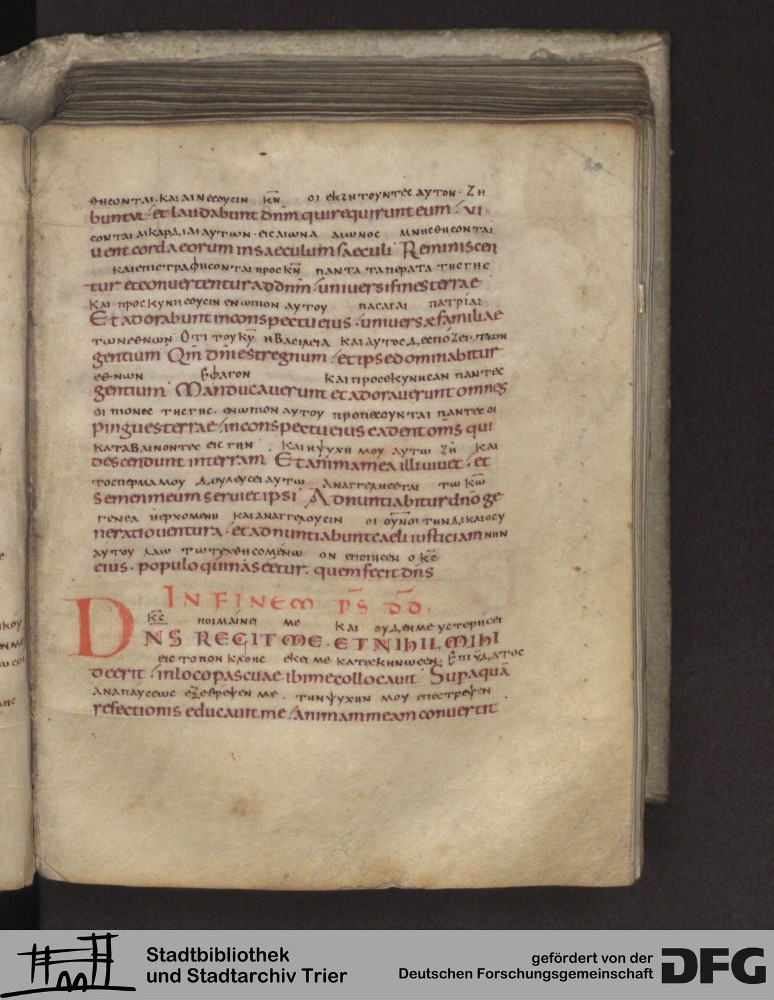 θηϲονται· και αινεϲουϲιν κ̅ν̅ οι εκζητουντεϲ αυτον· Ζη
buntur· et laudabunt dn̅m qui requirunt eum· ui
ϲονται αι καρδιαι αυτων· ειϲ αιωνα αιωνοϲ μνηϲθηϲονται
uent corda eorum in saeculum saeculi Reminiscen
και επιϲτραφηϲονται προϲ κ̅ν̅ παντα τα περατα τηϲ γηϲ
tur et conuertentur ad dn̅m· uniuersi fines terrae
και προϲκυνηϲουϲιν ενωπιον αυτου παϲαι αι πατριαι
Et adorabunt in conspectu eius· uniuersæ familiae
των εθνων Οτι του κ̅υ̅ η βαϲιλεια και αυτοϲ δεϲποζει· των
gentium Qm̅ dn̅i est regnum· et ipse dominabitur
εθνων Εφαγον και προϲεκυνηϲαν παντεϲ
gentium Manducauerunt et adorauerunt omnes
οι πιονεϲ τηϲ γηϲ· ενωπιον αυτου προπεϲουνται παντεϲ οι
pingues terrae· in conspectu eius cadent om̅s qui
καταβαινοντεϲ ειϲ γην· και η ψυχη μου αυτω ζη και
descendunt in terram Et anima mea illi uiuet· et
το ϲπερμα μου δουλευϲει αυτω αναγγεληϲεται τω κ̅ω̅
semen meum seruiet ipsi Adnuntiabitur dn̅o ge
γενεα η ερχομενη και αναγγελουϲιν οι ου̅νοι την δικαιοϲυ
neratio uentura· et adnuntiabunt caeli iustitiam νην
αυτου λαω τω τεχθηϲομενω ον εποιηϲεν ο κ̅ϲ̅
eius· populo qui nascetur· quem fecit dn̅s
IN FINEM P̅S̅ D̅D̅·
κ̅ϲ̅ ποιμαινει με και ουδεν με υϲτερηϲει
DNS REGIT ME· ET NIHIL MIHI
ειϲ τοπον χλοηϲ εκει με κατεϲκηνωϲεν· Επι υδατοϲ
deerit· in loco pascuae ibi me collocauit Sup aquā
αναπαυϲεωϲ εξεθρεψεν με· την ψυχην μου επεϲτρεψεν
refectionis educauit me· Animam meam conuertit
Stadtbibliothek
und Stadtarchiv Trier
gefördert von der
Deutschen Forschungsgemeinschaft
DFG